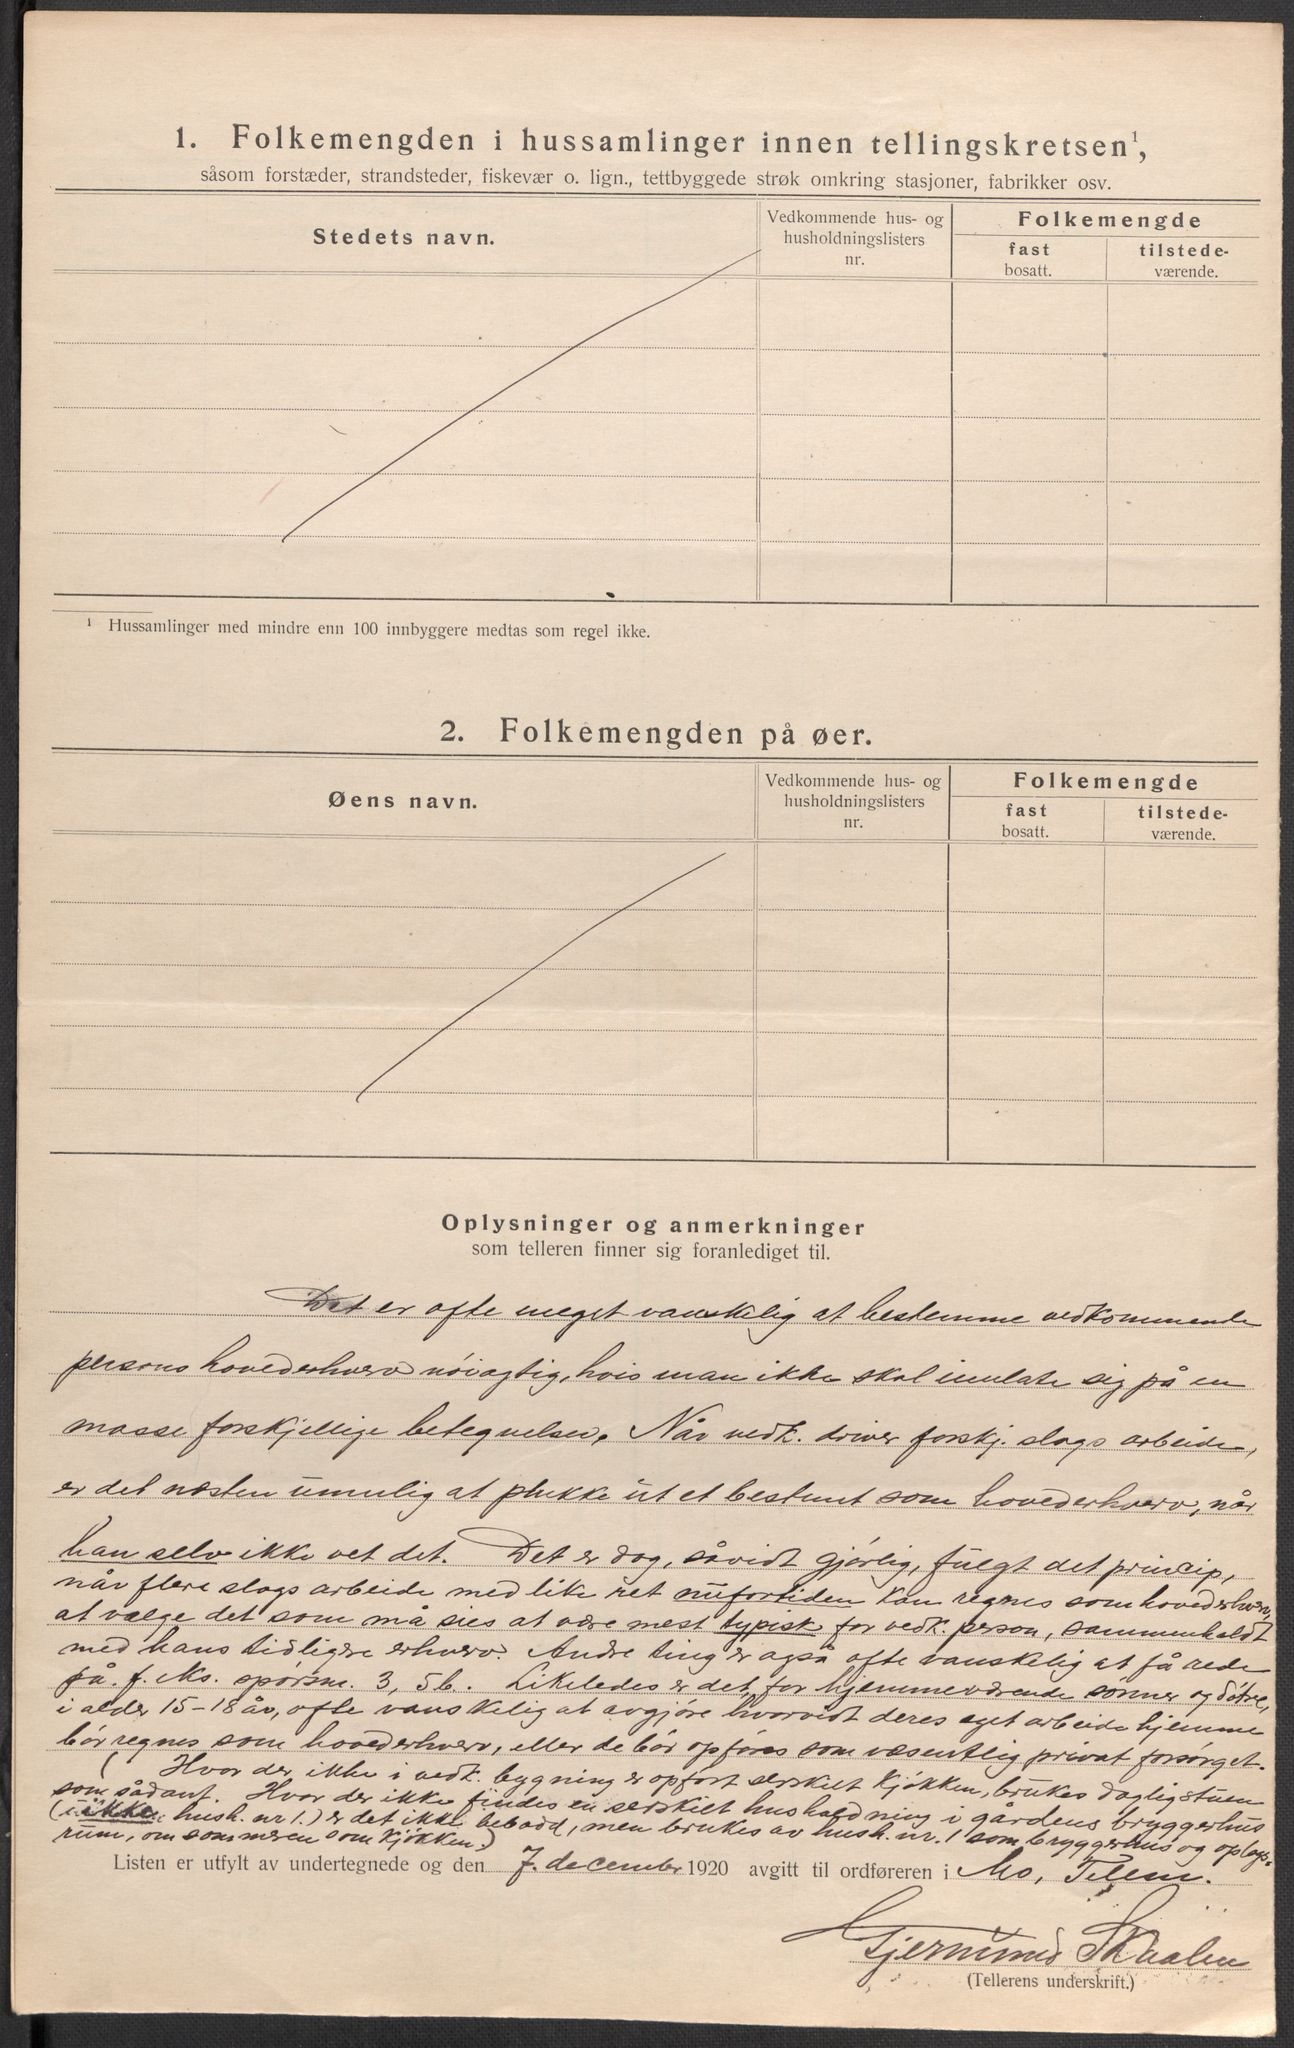 1. Folkemengden i hussamlinger innen tellingskretsen¹,
såsom forstæder, strandsteder, fiskevær o. lign., tettbyggede strøk omkring stasjoner, fabrikker osv.
Stedets navn.
Vedkommende hus- og
husholdningslisters
nr.
Folkemengde
fast
bosatt.
tilstede-
værende.
¹ Hussamlinger med mindre enn 100 innbyggere medtas som regel ikke.
2. Folkemengden på øer.
Øens navn.
Vedkommende hus- og
husholdningslisters
nr.
Folkemengde
fast
bosatt.
tilstede-
værende.
Oplysninger og anmerkninger
som telleren finner sig foranlediget til.
Det er ofte meget vanskelig at bestemme vedkommende
persons hovederhverv nöiagtig, hvis man ikke skal innlate sig på en
masse forskjellige betegnelser. Når vedk. driver forskj. slags arbeide,
er det næsten umulig at plukke ut et bestemt som hovederhverv, når
han selv ikke vet det. Det er dog, såvidt gjörlig, fulgt det princip,
når flere slags arbeide med like ret nufortiden kan regnes som hovederhverv,
at vælge det som må sies at være mest typisk for vedk. person, sammenholdt
med hans tidligere erhverv. Andre ting er også ofte vanskelig at få rede
på. f. eks. spörsm. 3, 5b. Likeledes er det, for hjemmeværende sönner og dötre,
i alder 15-18 år, ofte vanskelig at avgjöre hvorvidt deres eget arbeide hjemme
bör regnes som hovederhverv, eller de bör opföres som væsentlig privat forsörget.
Hvor der ikke i vedk. bygning er opfört særskilt kjökken, brukes dagligstuen
som sådant. Hvor der ikke findes en særskilt husholdning i gårdens bryggerhus
(ikke hush. nr 1.) er det ikke bebodd, men brukes av hush. nr. 1 som bryggerhus og oplags-
rum, om sommeren som kjökken.)
Listen er utfylt av undertegnede og den 7. december 1920 avgitt til ordføreren i Mo, Telem.
Gjermund Skaalen
(Tellerens underskrift.)